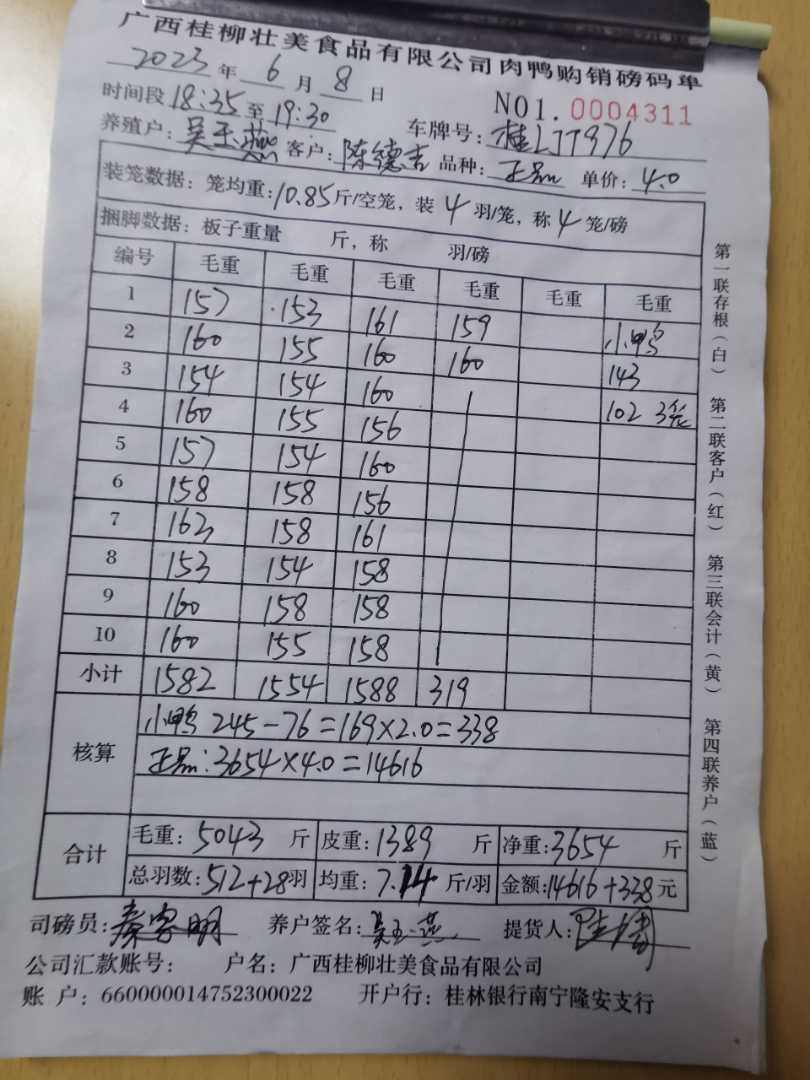 广西桂柳壮美食品有限公司肉鸭购销磅码单
2023年6月8日
NO1.0004311
时间段18:35至19:30 车牌号:桂LJT976
养殖户:吴玉燕 客户:陈德吉 品种:正品 单价:4.0
装笼数据:笼均重:10.85斤/空笼,装4羽/笼,称4笼/磅
捆脚数据:板子重量 斤,称 羽/磅
编号 毛重 毛重 毛重 毛重 毛重 毛重
1 157 153 161 159 小鸭
2 160 155 160 160 143
3 154 154 160 102 3笼
4 160 155 156
5 157 154 160
6 158 158 156
7 163 158 161
8 153 154 158
9 160 158 158
10 160 155 158
小计 1582 1554 1588 319
核算
小鸭 245-76=169×2.0=338
正品:3654×4.0=14616
合计
毛重:5043斤 皮重:1389斤 净重:3654斤
总羽数:512+28羽 均重:7.14斤/羽 金额:14616+338元
司磅员:秦家明 养户签名:吴玉燕 提货人:
公司汇款账号: 户名:广西桂柳壮美食品有限公司
账 户:660000014752300022 开户行:桂林银行南宁隆安支行
第一联存根(白) 第二联客户(红) 第三联会计(黄) 第四联养户(蓝)